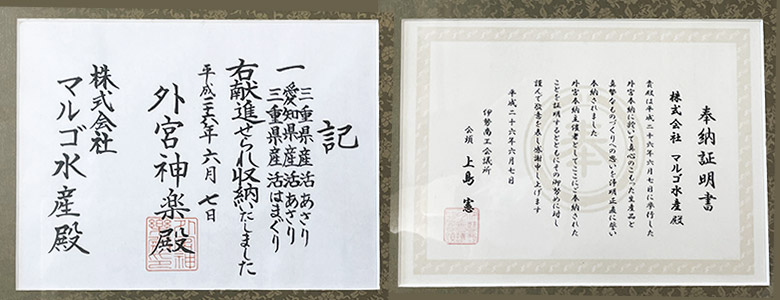 記
一 三重県産活あさり
愛知県産活あさり
三重県産活はまぐり
右献進せられ収納いたしました
平成二十六年六月七日
外宮神楽殿
株式会社
マルゴ水産殿
奉納証明書
株式会社 マルゴ水産 殿
貴奴は平成二十六年六月七日に挙行した
外宮奉納に於いて真心のこもった生産品と
真摯なものづくりへの思いを浄明正直に誓い
奉納されました
外宮奉納主催者としてここに奉納された
ことを証明するとともにその御努めに対し
謹んで敬意を表し感謝申し上げます
平成二十六年六月七日
伊勢商工会議所
会頭 上島 憲